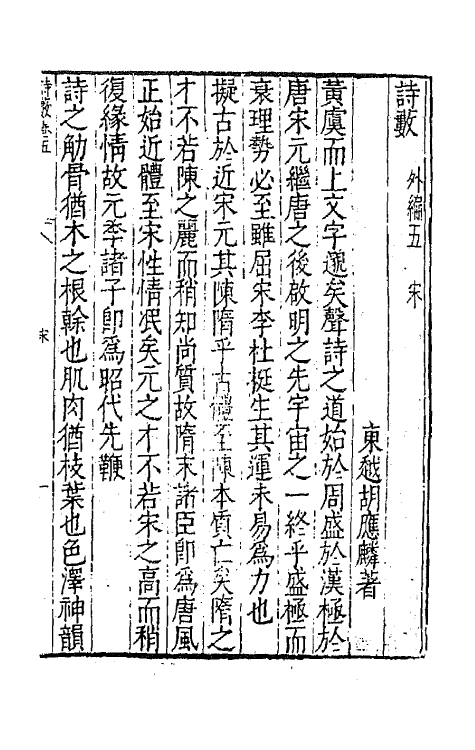 詩藪　外編五　宋
東越胡應麟著
黃虞而上文字邈矣聲詩之道始於周盛於漢極於
唐宋元繼唐之後啟明之先宇宙之一終乎盛極而
衰理勢必至雖屈宋李杜挺生其運未易為力也
擬古於近宋元其陳隋乎古體至陳本質亡矣隋之
才不若陳之麗而稍知尚質故隋末諸臣卽爲唐風
正始近體至宋性情泯矣元之才不若宋之高而稍
復緣情故元季諸子卽爲昭代先鞭
詩之觔骨猶木之根榦也肌肉猶枝葉也色澤神韻
詩藪卷五
宋
一